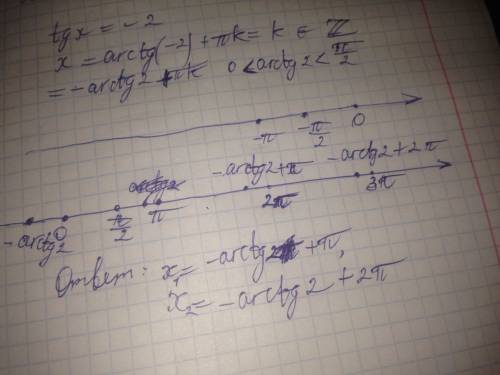 tg x = -2
x = arctg(-2) + πk = k ∈ ℤ
= -arctg2 + πk 0 < arctg2 < π/2
-π -π/2 0
-arctg2+π -arctg2+2π
-arctg2 0 π/2 π 2π 3π
Ответ: x₁ = -arctg2 + π,
x₂ = -arctg2 + 2π